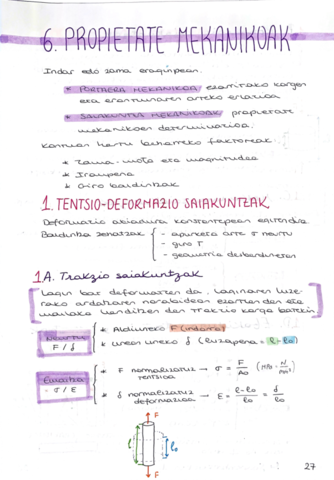 6. PROPIETATE MEKANIKOAK
Indar edo zama eraginpean.
* PORTAERA MEKANIKOA: ezarritako kargen
eta erantzunaren arteko erlazioa
* SAIAKUNTZA MEKANIKOAK: propietate
mekanikoen determinazioa.
Kontuan hartu beharreko faktoreak:
* Zama-mota eta magnitudea
* Iraupena
* Giro baldintzak
1. TENTSIO-DEFORMAZIO SAIAKUNTZAK
Deformazio abiadura konstantepean egiten dira
Baldintza zehatzak { - apurketa arte σ neurtu
- giro T
- geometria desberdinetan
1A. Trakzio saiakuntzak
Lagin bat deformatzen da, laginaren luze-
rako ardatzaren norabidean ezartzen den eta
mailaka handitzen den trakzio karga batekin.
Neurtu
F / δ
* Aldiuneko F (indarra)
* Uneon uneko δ (luzapena = l - l₀)
- σ / ε
* F normalizatuz → σ = F / A₀ (MPa = N / mm²)
tentsioa
* δ normalizatuz → ε = l - l₀ / l₀ = δ / l₀
deformazioa
F
l
l₀
F
27